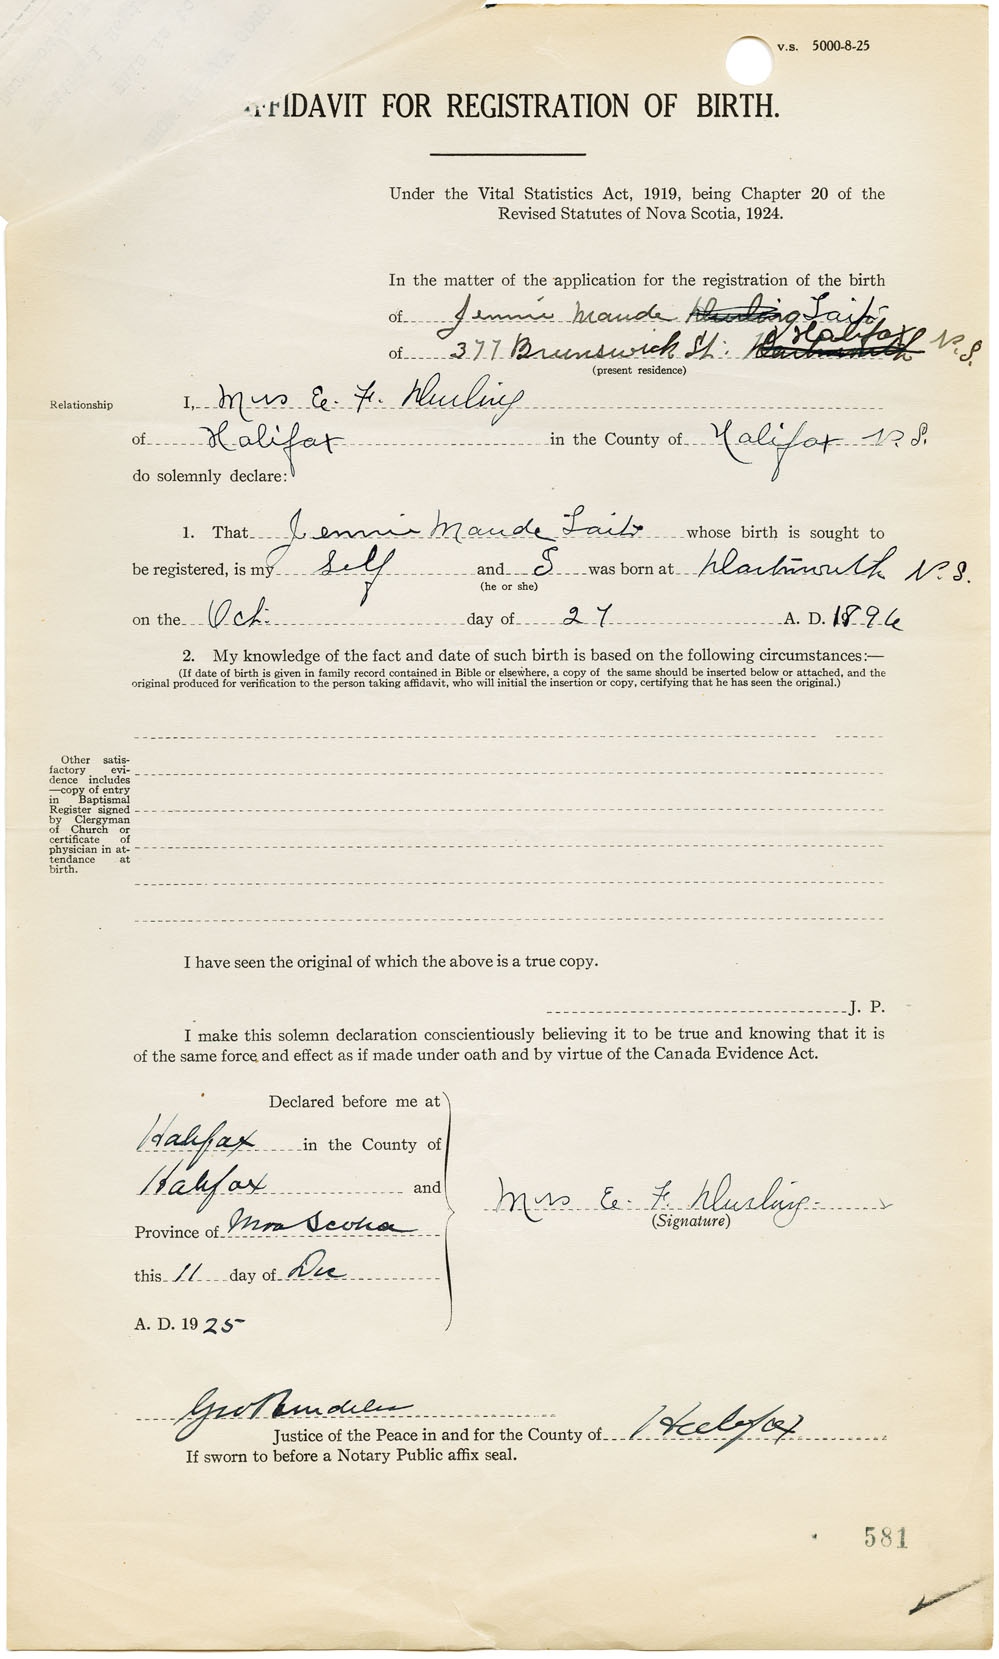 v.s. 5000-8-25
AFFIDAVIT FOR REGISTRATION OF BIRTH.
Under the Vital Statistics Act, 1919, being Chapter 20 of the
Revised Statutes of Nova Scotia, 1924.
In the matter of the application for the registration of the birth
of Jennie Maude Durling Taito
of 377 Brunswick St: Dartmouth Halifax N.S.
(present residence)
Relationship I, Mrs E. F. Durling
of Halifax in the County of Halifax N.S.
do solemnly declare:
1. That Jennie Maude whose birth is sought to
be registered, is my Self and S was born at Dartmouth N.S.
(he or she)
on the Oct: day of 27 A. D. 1896
2. My knowledge of the fact and date of such birth is based on the following circumstances:—
(If date of birth is given in family record contained in Bible or elsewhere, a copy of the same should be inserted below or attached, and the
original produced for verification to the person taking affidavit, who will initial the insertion or copy, certifying that he has seen the original.)
Other satis-
factory evi-
dence includes
—copy of entry
in Baptismal
Register signed
by Clergyman
of Church or
certificate of
physician in at-
tendance at
birth.
I have seen the original of which the above is a true copy.
J. P.
I make this solemn declaration conscientiously believing it to be true and knowing that it is
of the same force and effect as if made under oath and by virtue of the Canada Evidence Act.
Declared before me at
Halifax in the County of
Halifax and
Province of Nova Scotia
this 11 day of Dec
A. D. 1925
Mrs E. F. Durling
(Signature)
Geo
Justice of the Peace in and for the County of Halifax
If sworn to before a Notary Public affix seal.
581